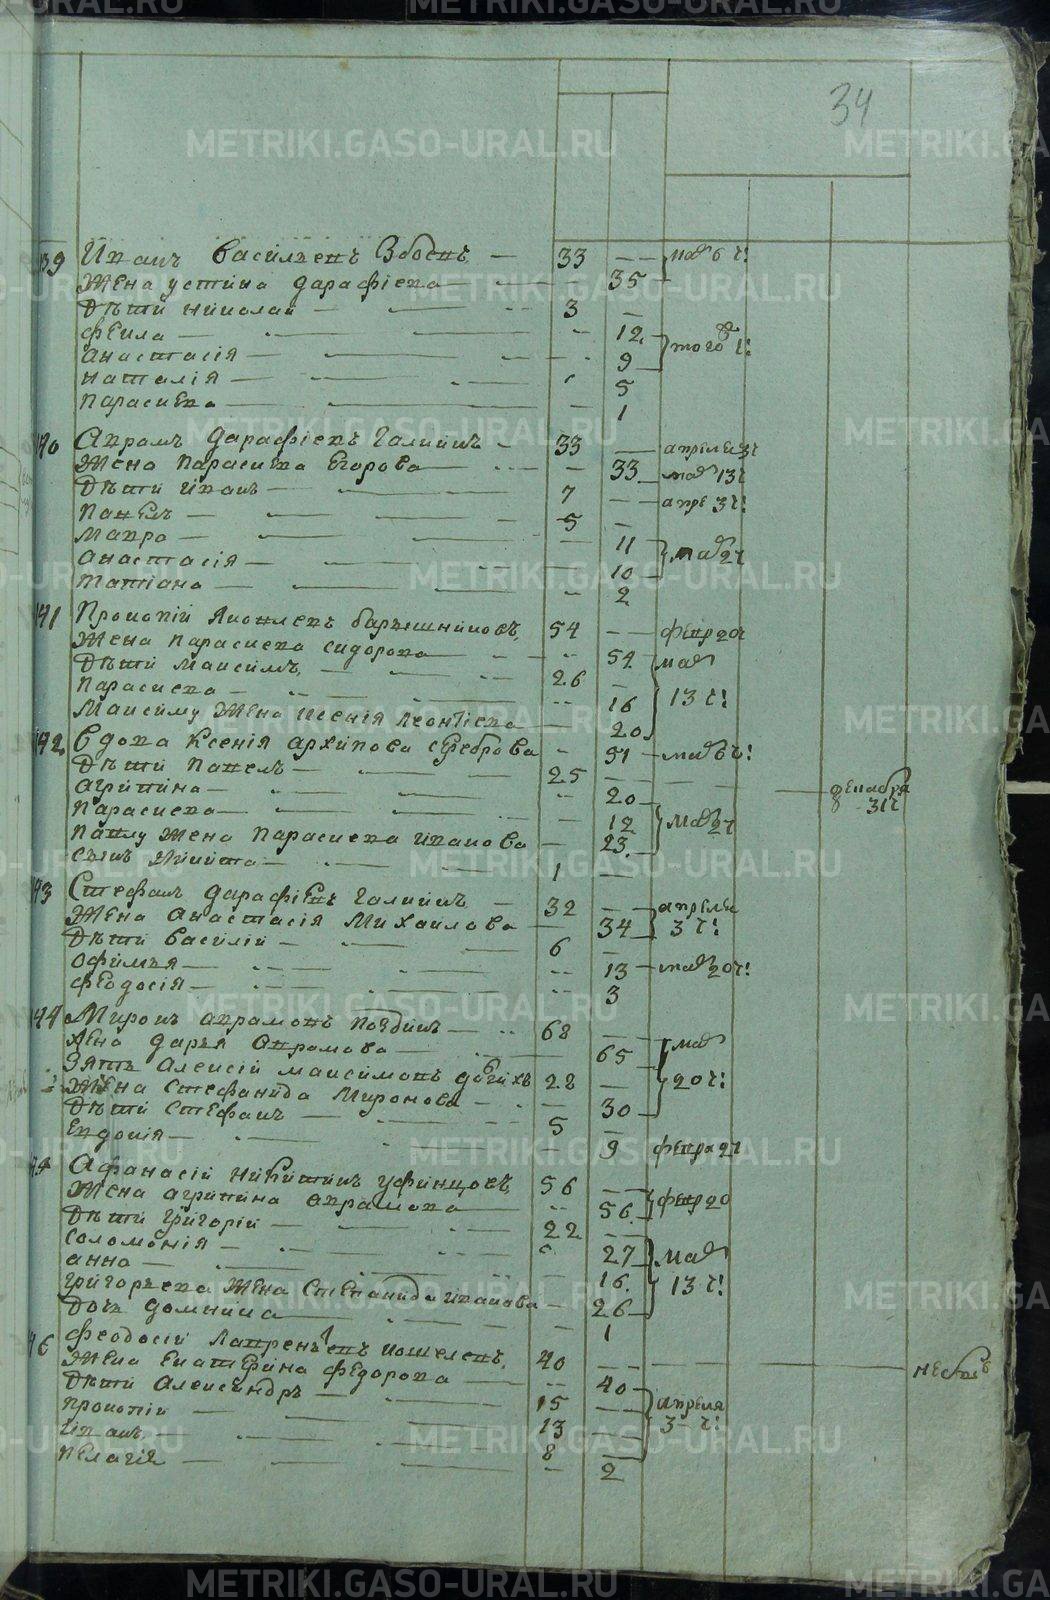 34
139 Иванъ Васильевъ Зобовъ — 33 — — маія 6 ч:
Жена устина дарафіева — 35
Дѣти николай — 3 —
феила — 12
анастасія — 9 того ч:
наталія — 5
парасиева — 1
140 Аврамъ дарафіевъ Галкинъ — 33 — апреля 3 ч
Жена парасиева Егорова — 33 маія 13 ч
Дѣти іванъ — 7 — — апре 3 ч:
павелъ — 5 —
мавра — 11
анастасія — 10 маія 2 ч
татіана — 2
141 Прокопій яковлевъ барышниковъ 54 — — февр 20 ч
Жена парасиева сидорова — 52 маія
Дѣти максимъ — 26 —
парасиева — 16 13 ч:
Максиму Жена ксенія леонтіева — 20
142 Вдова Ксенія архипова сереброва — 51 — маія 6 ч:
Дѣти павелъ — 25 — — декабря 31 ч
агрипина — 20
парасиева — 12 маія 2 ч
павлу жена парасиева иванова — 23
сынъ никита — 1 —
143 Стефанъ дарафіевъ Галкинъ — 32 — апреля
Жена анастасія Михайлова — 34 3 ч:
Дѣти василій — 6 —
офимья — 13 — маія 20 ч:
феодосія — 3
144 Миронъ аврамовъ поздинъ — 68 —
Жена дарья аврамова — 65 маія
Зять алексій максимовъ 28 — 20 ч:
Жена Стефанида Миронова — 30
Дѣти стефанъ — 5 —
Евдокія — 9 февра 2 ч
Афанасій никитинъ уфинцовъ 56 — февр 20
Жена агрипина аврамова — 56
Дѣти григорій — 22 —
соломонія — 27 маія
анна — 16 13 ч:
григорьева жена степанида іванова — 26
дочь домнина — 1
146 феодосій лаврентьевъ кошелевъ 40 — — — небылъ
жена екатерина федорова — 40
Дѣти александръ — 15 — апреля
прокопій — 13 — 3 ч:
іванъ — 8 —
пелагія — 2
METRIKI.GASO-URAL.RU